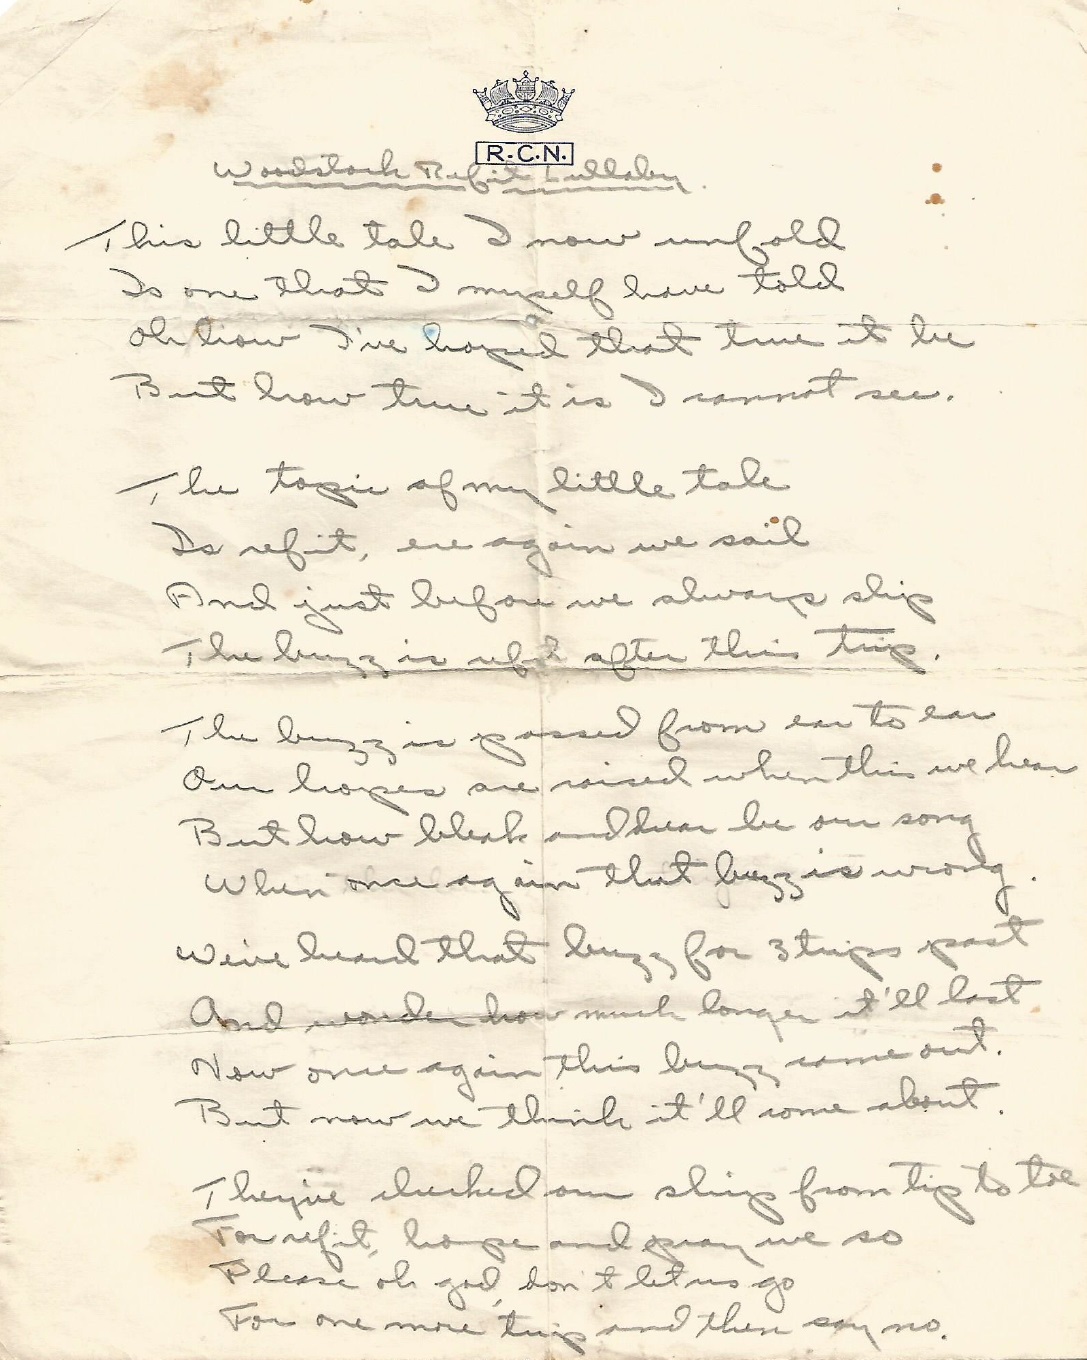 R.C.N.
Woodstock Refit Lullaby.
This little tale I now unfold
Is one that I myself have told
Oh how I've hoped that true it be
But how true it is I cannot see.
The topic of my little tale
Is refit, ere again we sail
And just before we always slip
The buzz is refit after this trip.
The buzz is passed from ear to ear
Our hopes are raised when this we hear
But how bleak and drear be our song
When once again that buzz is wrong.
We've heard that buzz for 3 trips past
And wonder how much longer it'll last
Now once again this buzz came out.
But now we think it'll come about.
They've checked our ship from tip to toe
For refit, hope and pray we so
Please oh god, don't let us go
For one more trip and then say no.